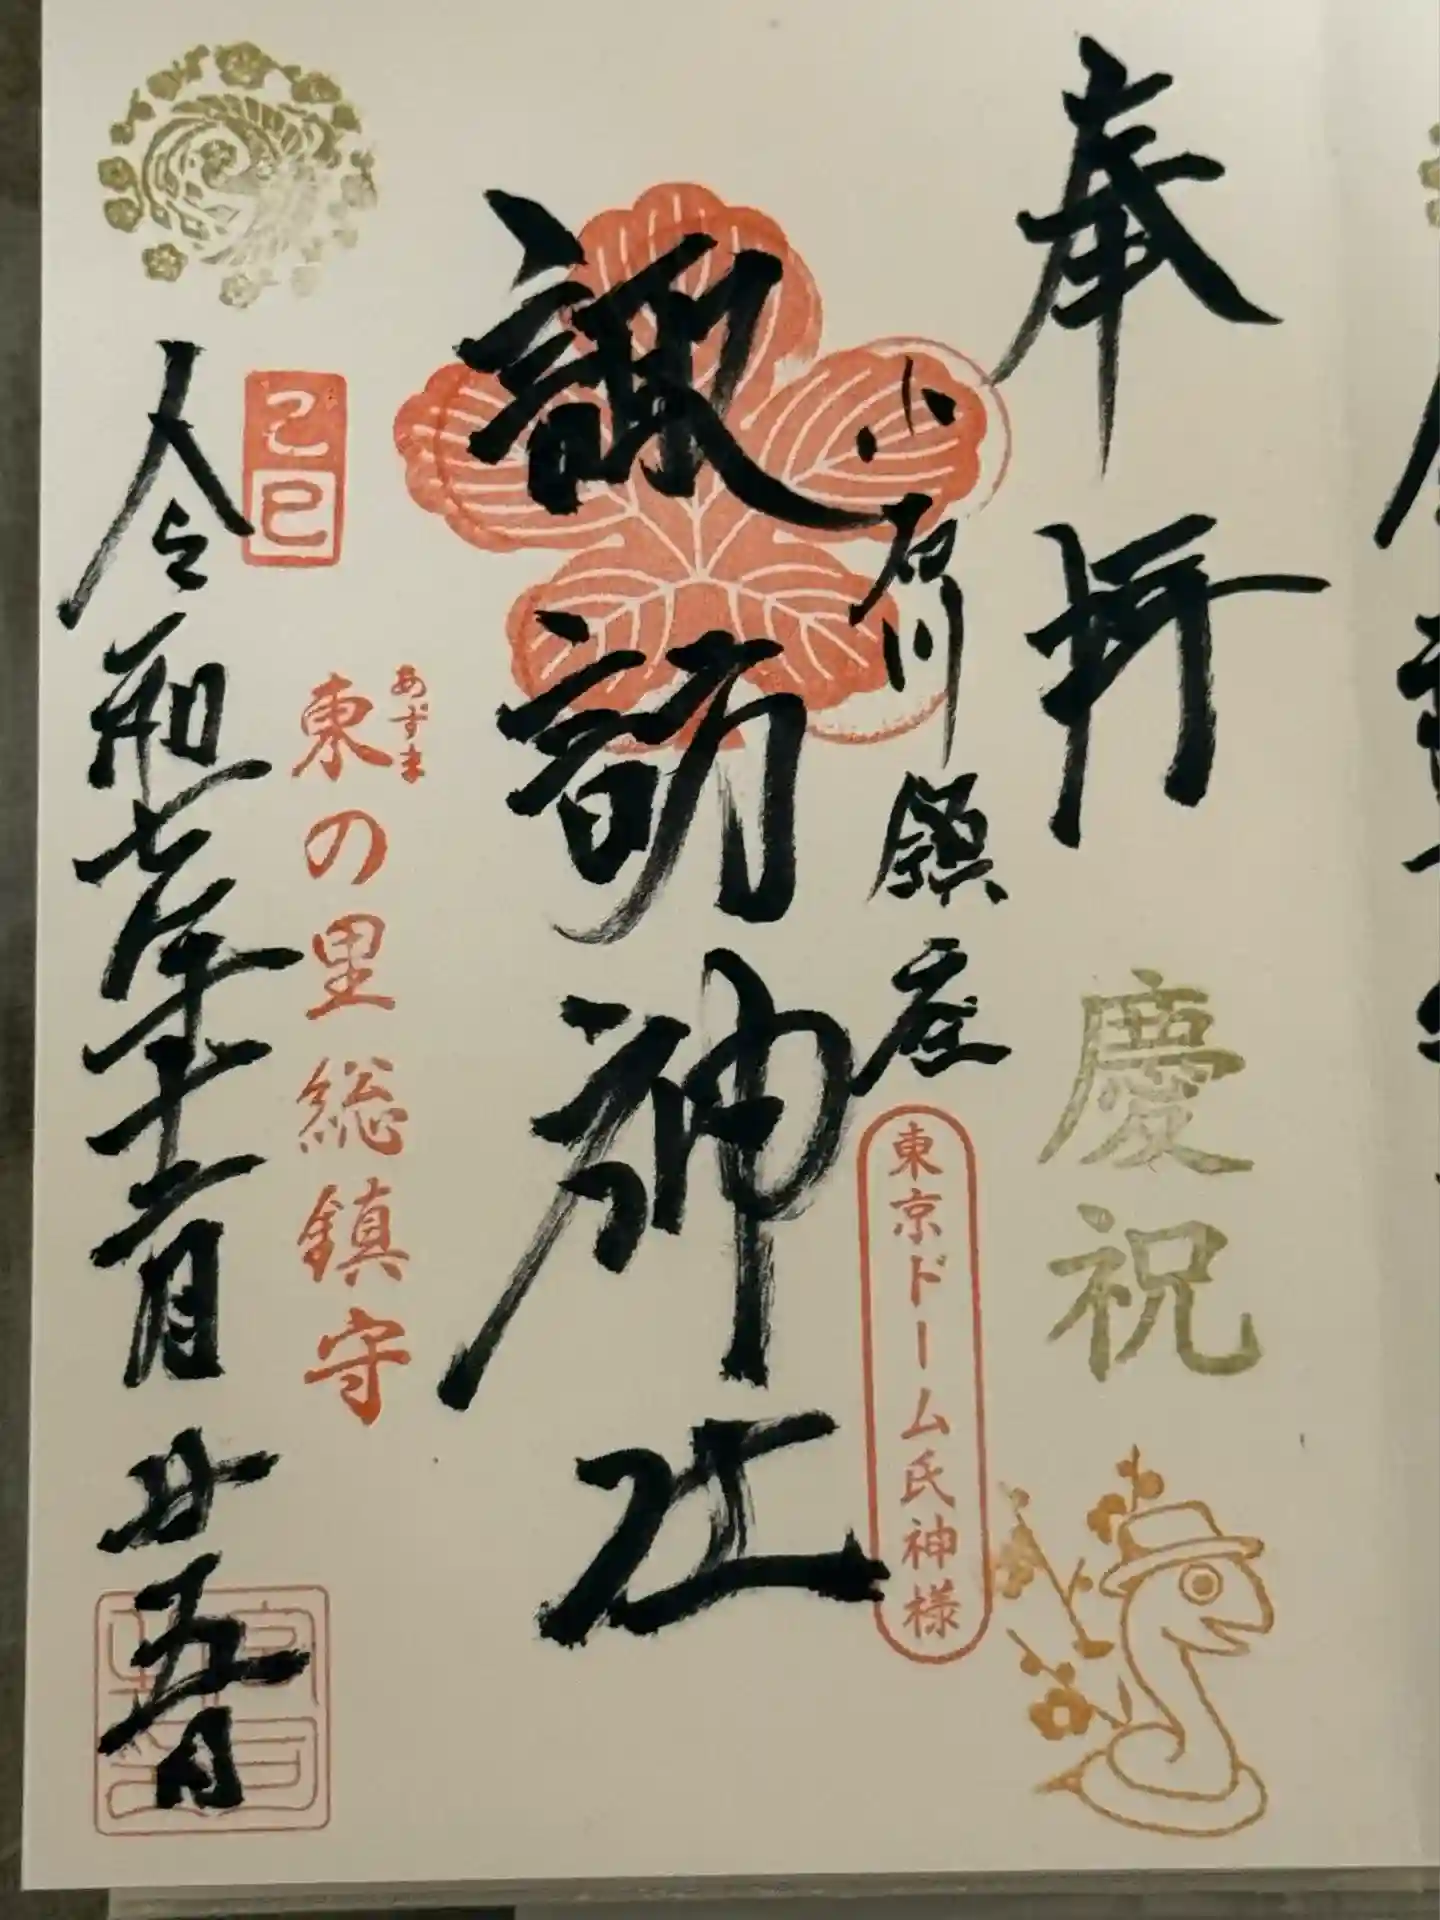 奉拝
慶祝
小石川鎮座
東京ドーム氏神様
諏訪神社
あずま
東の里総鎮守
己巳
令和七年十二月廿五日